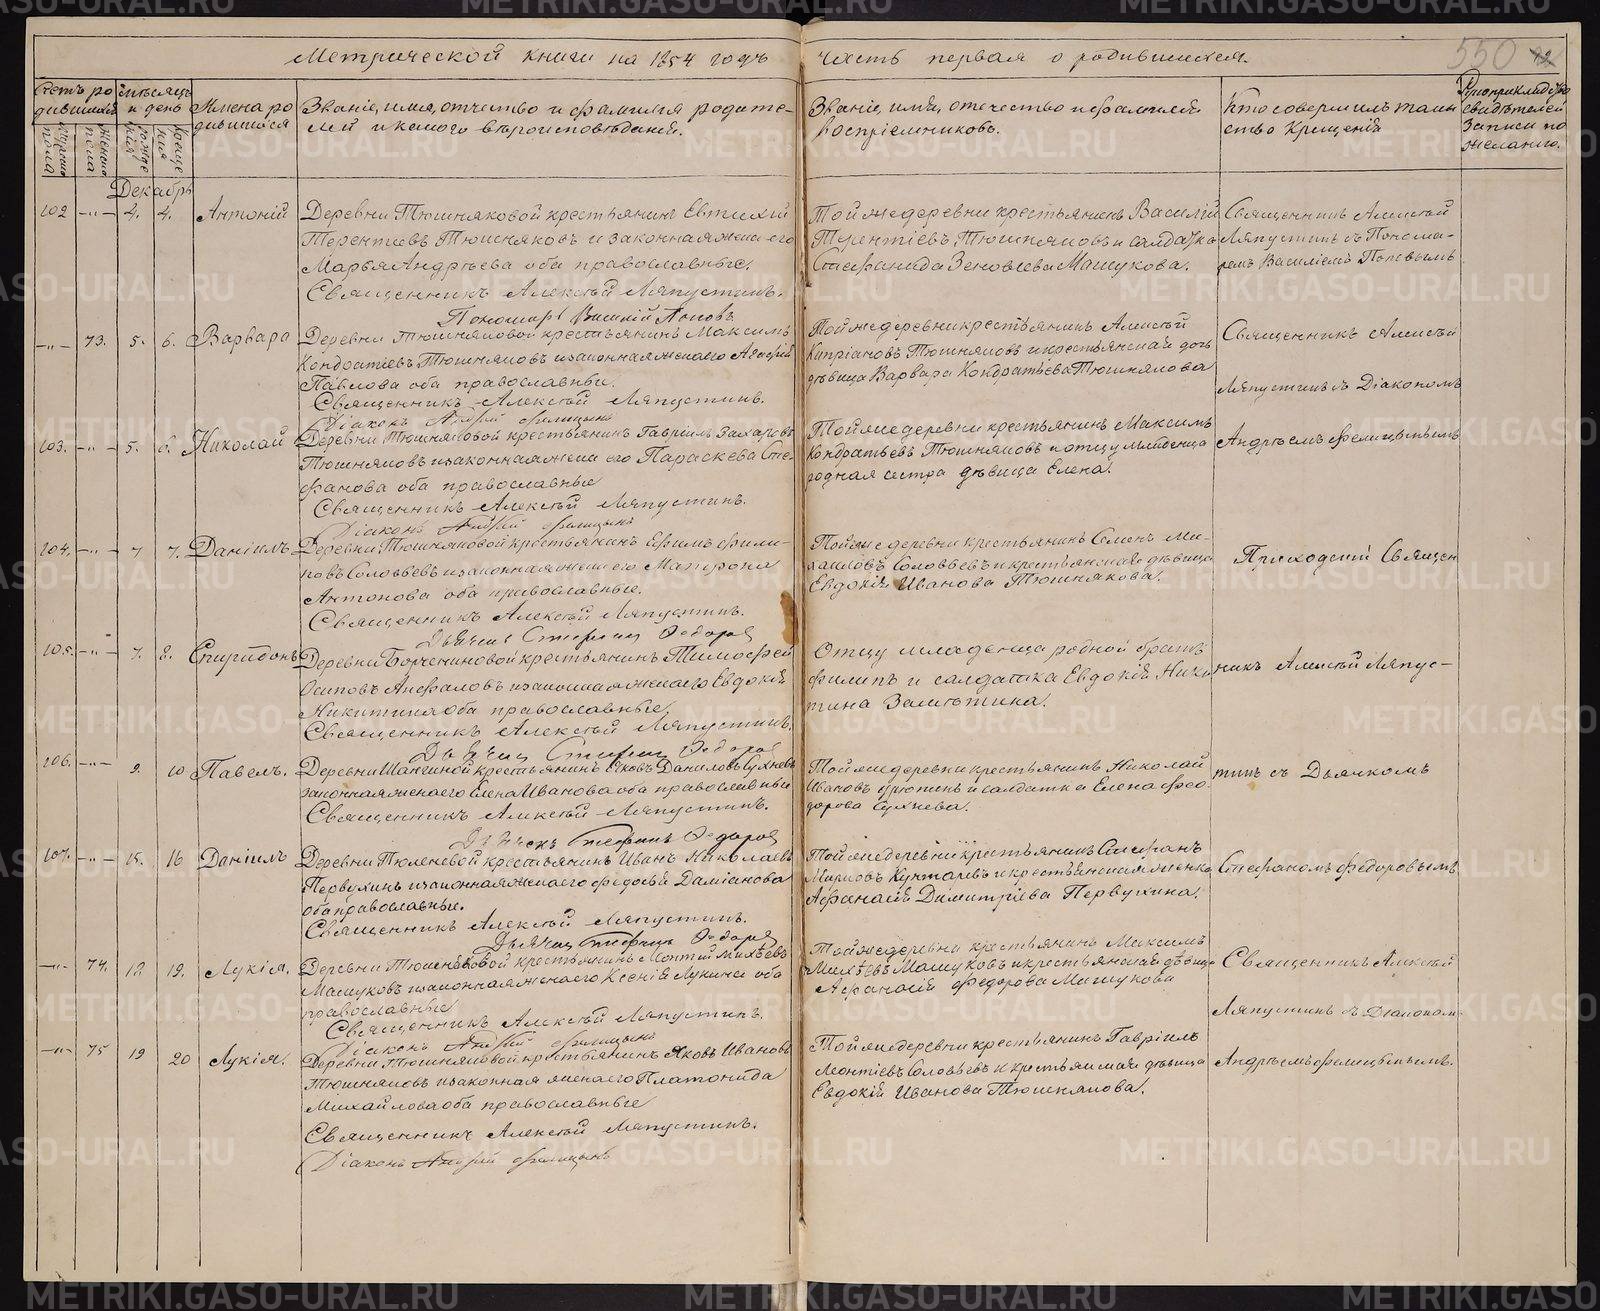 Метрической книги на 1854 годъ
часть первая о родившихся.
550
Счетъ ро
дившихся
Мѣсяцъ
и день
Имена ро
дившихся
Званіе, имя, отчество и фамилія родите-
лей и какого вѣроисповѣданія.
Званіе, имя, отечество и фамилія
воспріемниковъ.
Кто совершилъ таин
ство Крещенія
Рукоприкладство
свидѣтелей
записи по
желанію.
Мужеска
пола
Женска
пола
рожде
нія
креще
нія
Декабрь
102 -"- 4. 4. Антоній
Деревни Тюшняковой крестьянинъ Евтихій
Терентіевъ Тюшняковъ и законная жена его
Марья Андрѣева оба православные.
Священникъ Алексѣй Ляпустинъ.
Пономарь Василій Поповъ
Той же деревни крестьянинъ Василій
Терентіевъ Тюшняковъ и салдатка
Стефанида Зеновіева Машукова.
Священникъ Алексѣй
Ляпустинъ съ Понома-
ремъ Василіемъ Поповымъ
-"- 73. 5. 6. Варвара
Деревни Тюшняковой крестьянинъ Максимъ
Кондратіевъ Тюшняковъ и законная жена его
Павлова оба православные.
Священникъ Алексѣй Ляпустинъ.
Діаконъ Андрей Фелицынъ
Той же деревни крестьянинъ Алексѣй
Кипріановъ Тюшняковъ и крестьянская дочь
дѣвица Варвара Кондратьева Тюшнякова
Священникъ Алексѣй
Ляпустинъ съ Діакономъ
103. -"- 5. 6. Николай
Деревни Тюшняковой крестьянинъ Гавріилъ Захаровъ
Тюшняковъ и законная жена его Параскева Сте
фанова оба православные
Священникъ Алексѣй Ляпустинъ.
Діаконъ Андрей Фелицынъ
Той же деревни крестьянинъ Максимъ
Кондратьевъ Тюшняковъ и отцу младенца
родная сестра дѣвица Елена.
Андрѣемъ Фелицынымъ
104. -"- 7 7. Даніилъ
Деревни Тюшняковой крестьянинъ Ефимъ Фили-
повъ Соловьевъ и законная жена его Матрона
Антонова оба православные.
Священникъ Алексѣй Ляпустинъ.
Дьячекъ Стефанъ Федоровъ
Той же деревни крестьянинъ Семенъ Ми-
хаиловъ Соловьевъ и крестьянская дѣвица
Евдокія Иванова Тюшнякова.
Приходскій Священ
105. -"- 7. 8. Спиридонъ
Деревни крестьянинъ Тимофей
Осиповъ Анфаловъ и законная жена его Евдокія
Никитина оба православные.
Священникъ Алексѣй Ляпустинъ.
Дьячекъ Стефанъ Федоровъ
Отцу младенца родной братъ
Филипъ и салдатка Евдокія Ники
тина
никъ Алексѣй Ляпус-
106. -"- 9. 10 Павелъ.
Деревни крестьянинъ Яковъ Даниловъ Сухневъ
законная жена его Елена Иванова оба православные
Священникъ Алексѣй Ляпустинъ.
Дьячекъ Стефанъ Федоровъ
Той же деревни крестьянинъ Николай
Ивановъ и салдатка Елена Фео
дорова Сухнева.
тинъ съ Дьячкомъ
107. -"- 15. 16 Даніилъ
Деревни Тюленевой крестьянинъ Иванъ Николаевъ
Первухинъ и законная жена его Федосья Даміанова
оба православные.
Священникъ Алексѣй Ляпустинъ.
Дьячекъ Стефанъ Федоровъ
Той же деревни крестьянинъ Стефанъ
и крестьянская женка
Афанасія Димитріева Первухина.
Стефаномъ Федоровымъ
-"- 74. 18. 19. Лукія.
Деревни Тюшняковой крестьянинъ Леонтій Михѣевъ
Машуковъ и законная жена его Ксенія Лукина оба
православные
Священникъ Алексѣй Ляпустинъ.
Діаконъ Андрей Фелицынъ
Той же деревни крестьянинъ Максимъ
Михѣевъ Машуковъ и крестьянская дѣвица
Афанасія Федорова Машукова
Священникъ Алексѣй
Ляпустинъ съ Діакономъ
-"- 75 19 20 Лукія.
Деревни Тюшняковой крестьянинъ Яковъ Ивановъ
Тюшняковъ и законная жена его Платонида
Михайлова оба православные
Священникъ Алексѣй Ляпустинъ.
Діаконъ Андрей Фелицынъ
Той же деревни крестьянинъ Гавріилъ
Леонтіевъ Соловьевъ и крестьянская дѣвица
Евдокія Иванова Тюшнякова.
Андрѣемъ Фелицынымъ.
METRIKI.GASO-URAL.RU